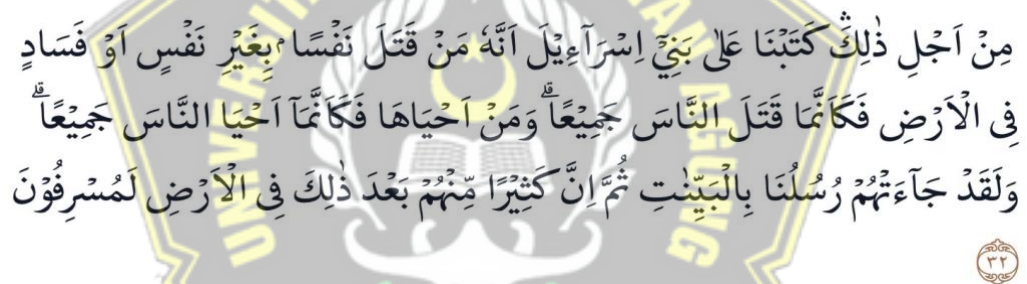 مِنْ اَجْلِ ذٰلِكَ ۛ كَتَبْنَا عَلٰى بَنِيْٓ اِسْرَاۤءِيْلَ اَنَّهٗ مَنْ قَتَلَ نَفْسًا ۢ بِغَيْرِ نَفْسٍ اَوْ فَسَادٍ
فِى الْاَرْضِ فَكَاَنَّمَا قَتَلَ النَّاسَ جَمِيْعًاۗ وَمَنْ اَحْيَاهَا فَكَاَنَّمَآ اَحْيَا النَّاسَ جَمِيْعًاۗ
وَلَقَدْ جَاۤءَتْهُمْ رُسُلُنَا بِالْبَيِّنٰتِ ثُمَّ اِنَّ كَثِيْرًا مِّنْهُمْ بَعْدَ ذٰلِكَ فِى الْاَرْضِ لَمُسْرِفُوْنَ
٣٢